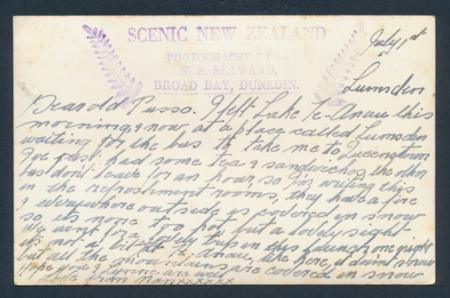 SCENIC NEW ZEALAND
PHOTOGRAPHY BY
N. S. SEAWARD,
BROAD BAY, DUNEDIN.
July 1st
Lumsden
Dear old Pusso. I left Lake Te-Anau this
morning, & now at a place called Lumsden
waiting for the bus to take me to Queenstown
I've just had some tea & sandwiches, the
bus dont leave for an hour, so I'm writing this
in the refreshment rooms, they have a fire
& everywhere outside is covered in snow
so its none too hot, but a lovely sight
We went for a lovely trip in launch one night
its not a bit Te Anau, like here, it didn't snow
but all the mountains are covered in snow
Hope you & Lynne are well
Love from Nan xxxxxx